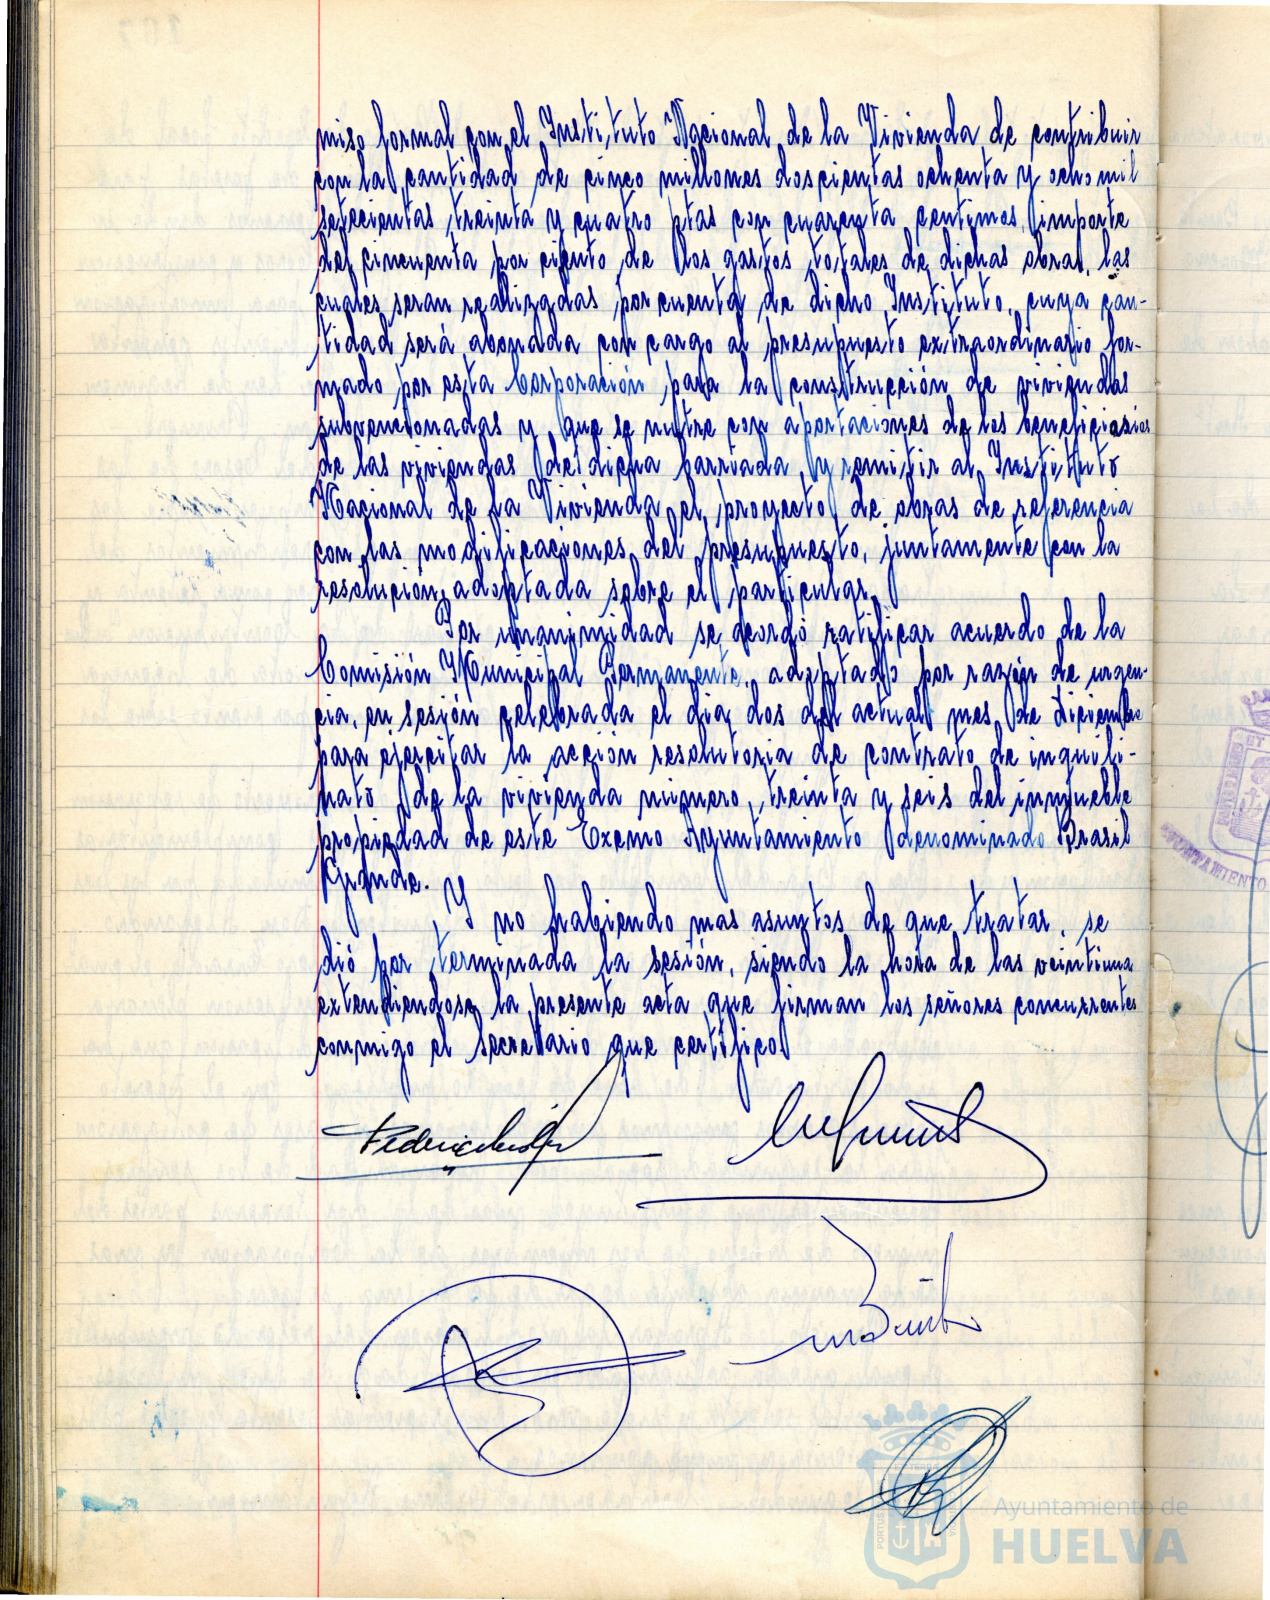 miso formal con el Instituto Nacional de la Vivienda de contribuir
con la cantidad de cinco millones doscientas ochenta y ocho mil
setecientas treinta y cuatro ptas con cuarenta centimos, importe
del cincuenta por ciento de los gastos totales de dichas obras, las
cuales seran realizadas por cuenta de dicho Instituto, cuya can-
tidad será abonada con cargo al presupuesto extraordinario for-
mado por esta Corporación para la construcción de viviendas
subvencionadas y que se nutre con aportaciones de los beneficiarios
de las viviendas de dicha barriada, y remitir al Instituto
Nacional de la Vivienda el proyecto de obras de referencia
con las modificaciones del presupuesto, juntamente con la
resolución adoptada sobre el particular.
Por unanimidad se acordó ratificar acuerdo de la
Comisión Municipal Permanente, adoptado por razón de urgen-
cia, en sesión celebrada el dia dos del actual mes de diciembre
para ejercitar la acción resolutoria de contrato de inquili-
nato de la vivienda número treinta y seis del inmueble
propiedad de este Excmo Ayuntamiento denominado Brasil
Grande.
Y no habiendo mas asuntos de que tratar, se
dió por terminada la sesión, siendo la hora de las veintiuna
extendiendose la presente acta que firman los señores concurrentes
conmigo el Secretario que certifico.
Ayuntamiento de
HUELVA